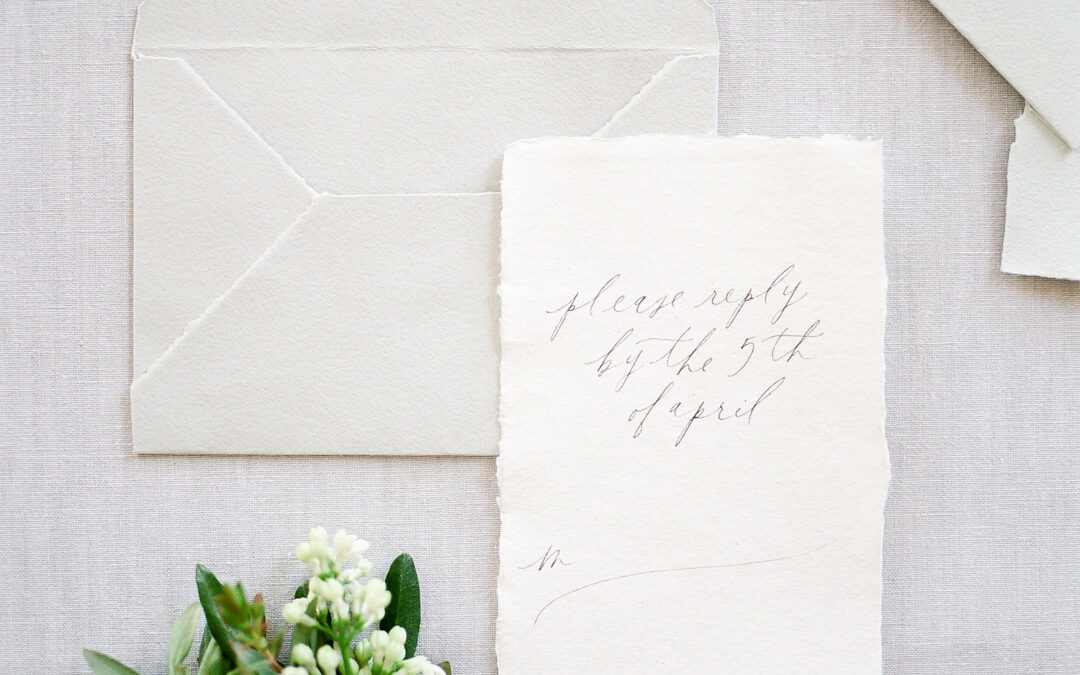 please reply
by the 5th
of april
m